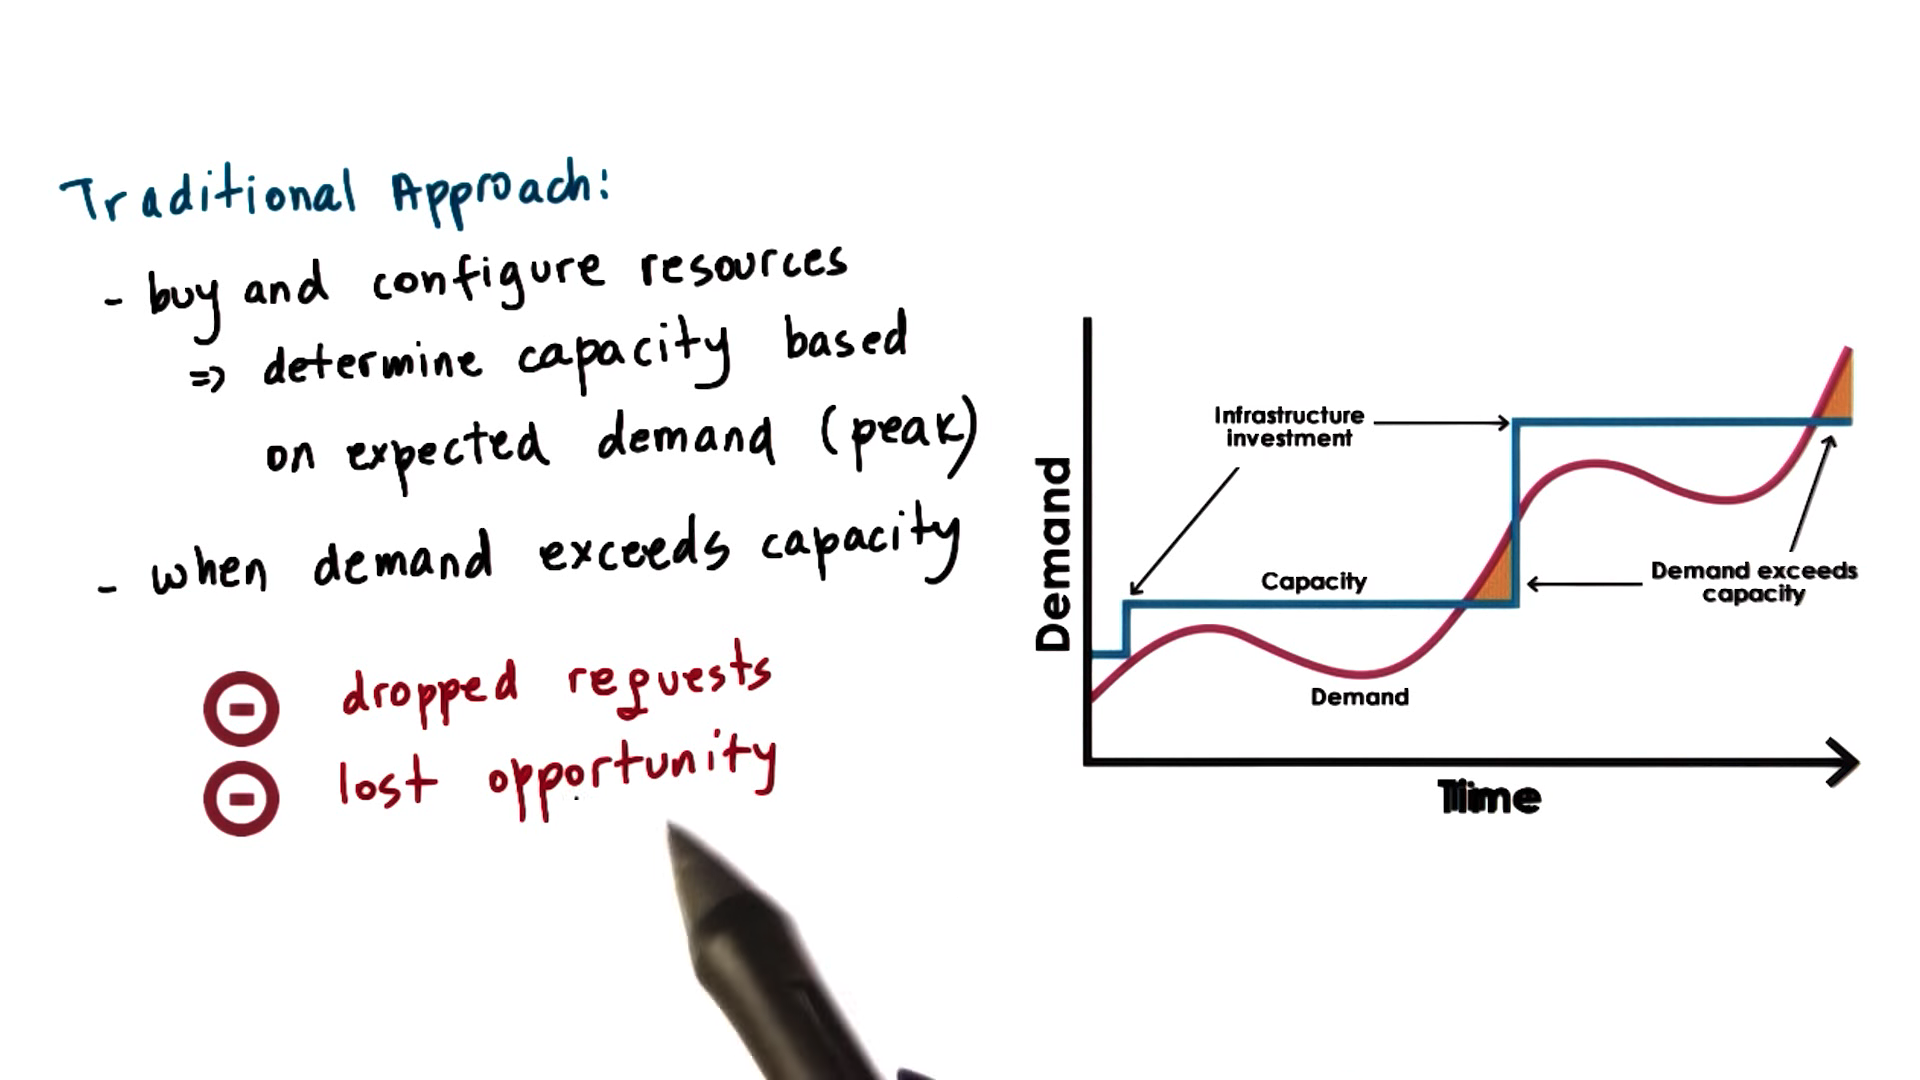 Traditional Approach:
- buy and configure resources
=> determine capacity based
on expected demand (peak)
- when demand exceeds capacity
- dropped requests
- lost opportunity
Demand
Infrastructure
investment
Capacity
Demand
Demand exceeds
capacity
Time